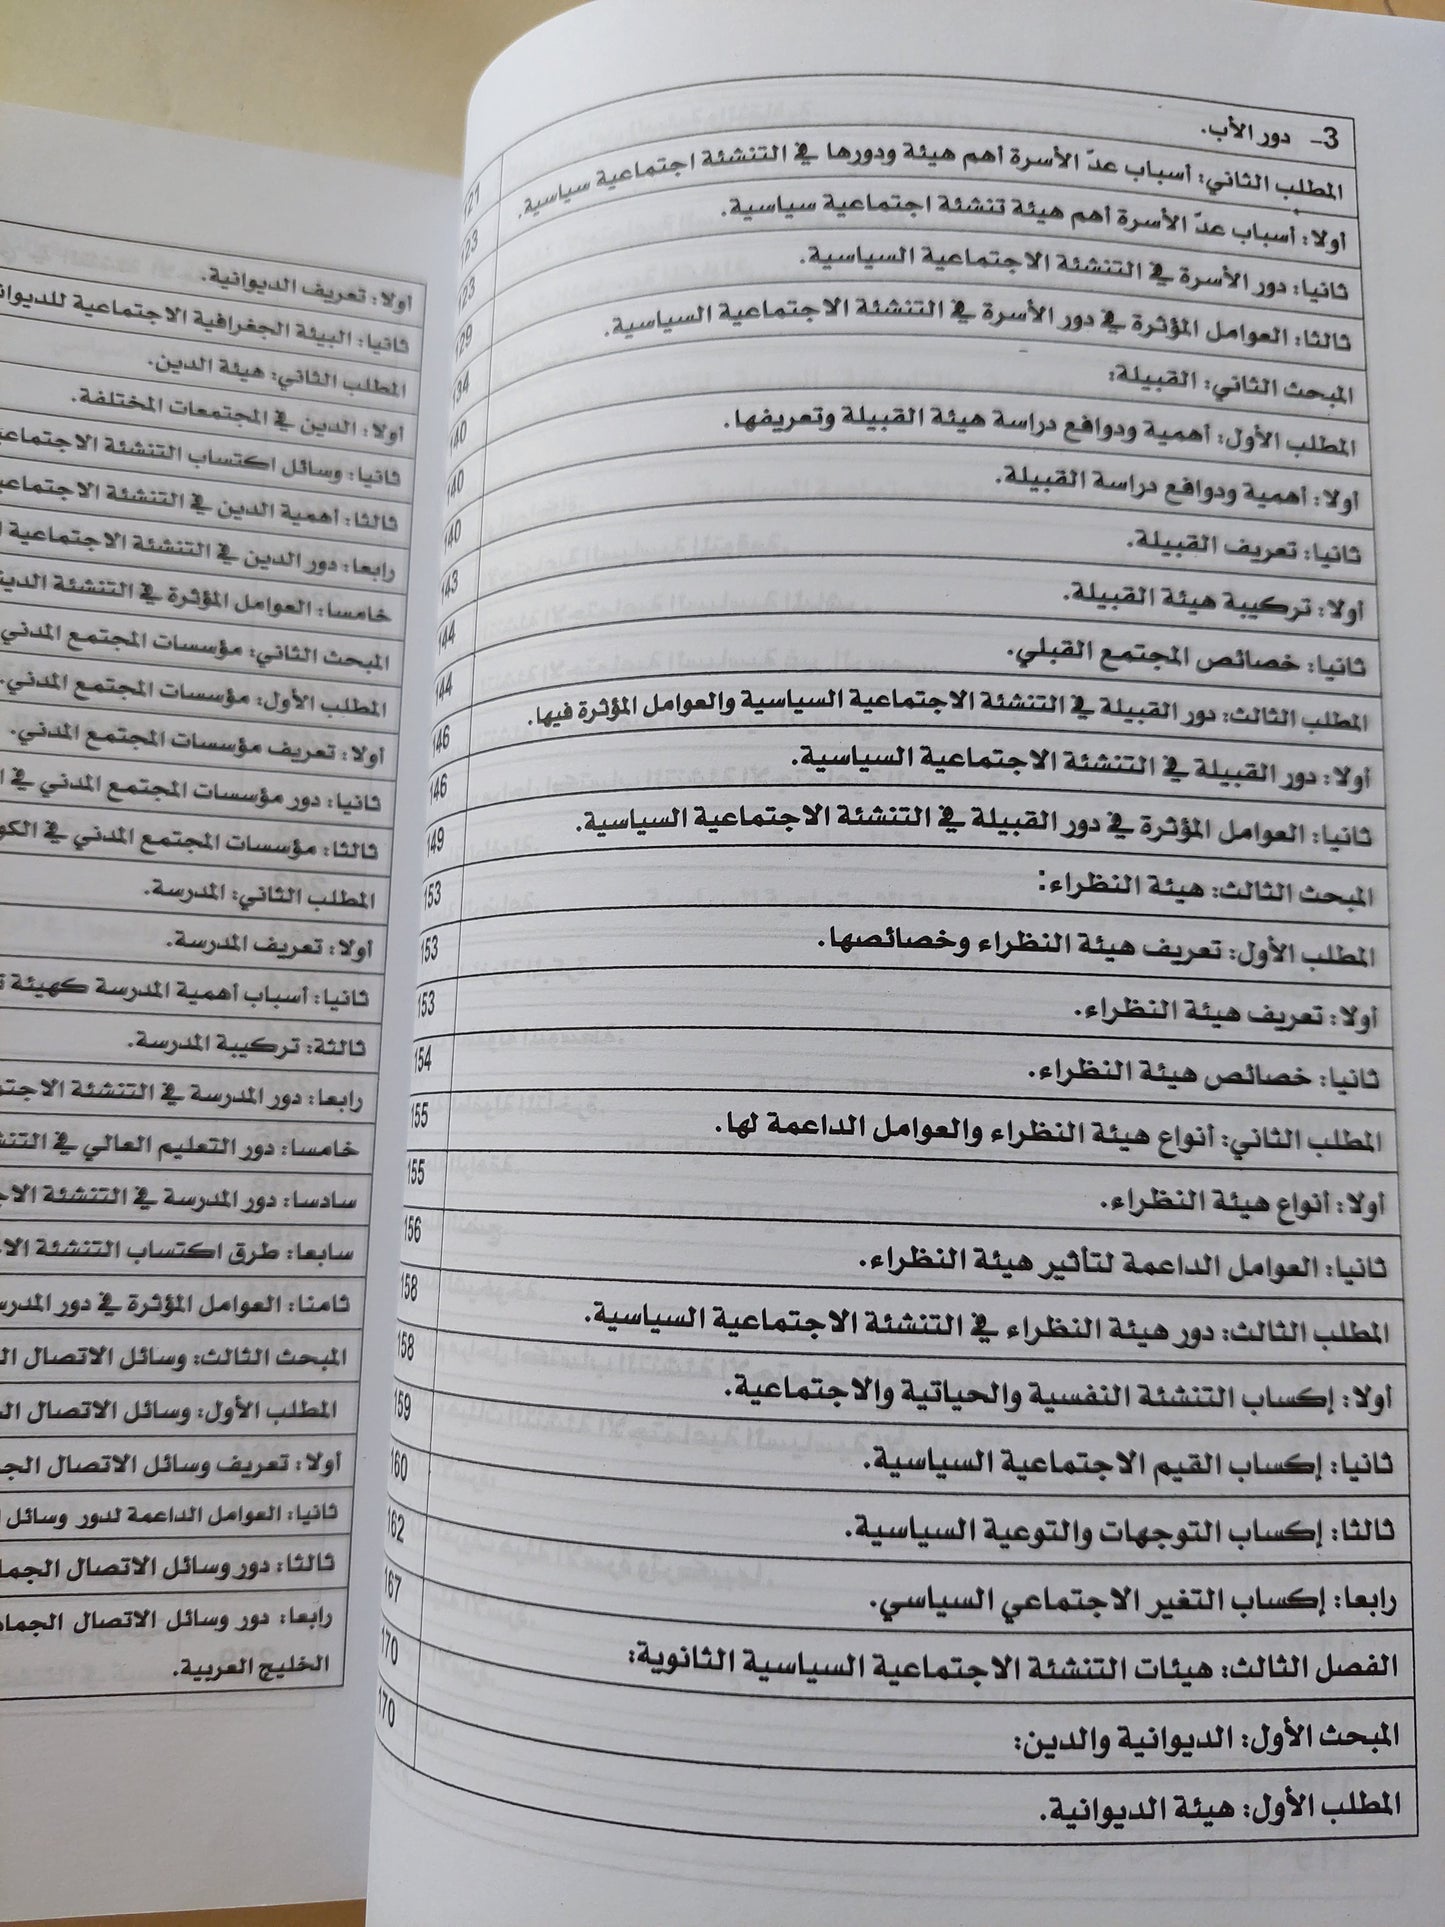 3- دور الأب. 121
المطلب الثاني: أسباب عدّ الأسرة أهم هيئة ودورها في التنشئة اجتماعية سياسية. 123
أولا: أسباب عدّ الأسرة أهم هيئة تنشئة اجتماعية سياسية. 123
ثانيا: دور الأسرة في التنشئة الاجتماعية السياسية. 129
ثالثا: العوامل المؤثرة في دور الأسرة في التنشئة الاجتماعية السياسية. 134
المبحث الثاني: القبيلة: 140
المطلب الأول: أهمية ودوافع دراسة هيئة القبيلة وتعريفها. 140
أولا: أهمية ودوافع دراسة القبيلة. 140
ثانيا: تعريف القبيلة. 143
أولا: تركيبة هيئة القبيلة. 144
ثانيا: خصائص المجتمع القبلي. 144
المطلب الثالث: دور القبيلة في التنشئة الاجتماعية السياسية والعوامل المؤثرة فيها. 146
أولا: دور القبيلة في التنشئة الاجتماعية السياسية. 146
ثانيا: العوامل المؤثرة في دور القبيلة في التنشئة الاجتماعية السياسية. 149
المبحث الثالث: هيئة النظراء: 153
المطلب الأول: تعريف هيئة النظراء وخصائصها. 153
أولا: تعريف هيئة النظراء. 153
ثانيا: خصائص هيئة النظراء. 154
المطلب الثاني: أنواع هيئة النظراء والعوامل الداعمة لها. 155
أولا: أنواع هيئة النظراء. 155
ثانيا: العوامل الداعمة لتأثير هيئة النظراء. 156
المطلب الثالث: دور هيئة النظراء في التنشئة الاجتماعية السياسية. 158
أولا: إكساب التنشئة النفسية والحياتية والاجتماعية. 158
ثانيا: إكساب القيم الاجتماعية السياسية. 159
ثالثا: إكساب التوجهات والتوعية السياسية. 160
رابعا: إكساب التغير الاجتماعي السياسي. 162
الفصل الثالث: هيئات التنشئة الاجتماعية السياسية الثانوية: 167
المبحث الأول: الديوانية والدين: 170
المطلب الأول: هيئة الديوانية. 170
أولا: تعريف الديوانية.
ثانيا: البيئة الجغرافية الاجتماعية
المطلب الثاني: هيئة الدين.
أولا: الدين في المجتمعات المختلفة.
ثانيا: وسائل اكتساب التنشئة
ثالثا: أهمية الدين في التنشئة
رابعا: دور الدين في التنشئة الاجتماعية
خامسا: العوامل المؤثرة في التنشئة
المبحث الثاني: مؤسسات المجتمع المدني
المطلب الأول: مؤسسات المجتمع المدني.
أولا: تعريف مؤسسات المجتمع المدني.
ثانيا: دور مؤسسات المجتمع المدني في
ثالثا: مؤسسات المجتمع المدني في
المطلب الثاني: المدرسة.
أولا: تعريف المدرسة.
ثانيا: أسباب أهمية المدرسة كهيئة
ثالثة: تركيبة المدرسة.
رابعا: دور المدرسة في التنشئة
خامسا: دور التعليم العالي في
سادسا: دور المدرسة في التنشئة
سابعا: طرق اكتساب التنشئة
ثامنا: العوامل المؤثرة في دور
المبحث الثالث: وسائل الاتصال
المطلب الأول: وسائل الاتصال
أولا: تعريف وسائل الاتصال
ثانيا: العوامل الداعمة لدور وسائل
ثالثا: دور وسائل الاتصال
رابعا: دور وسائل الاتصال
الخليج العربية.